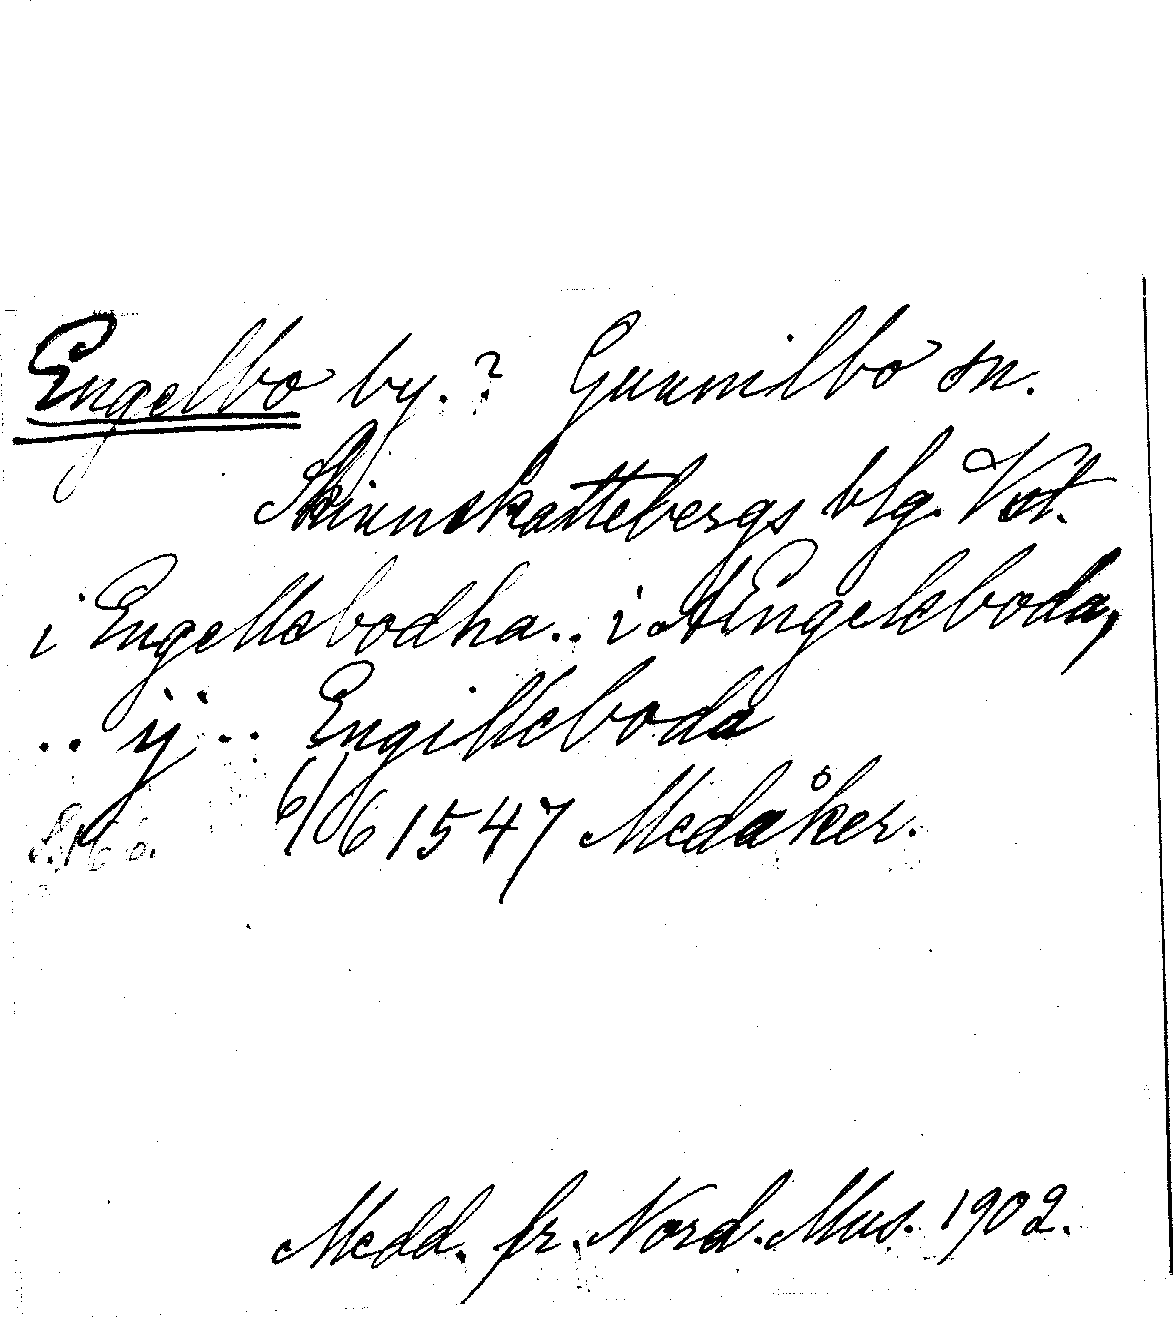 Engelbo by.? Gunnilbo sn.
Skinnskattebergs blg. Vst.
i Engellebodha.. i Engeleboda,
.. ij .. Engilleboda
6/6 1547 Medåker.
Medd. fr. Nord. Mus. 1902.